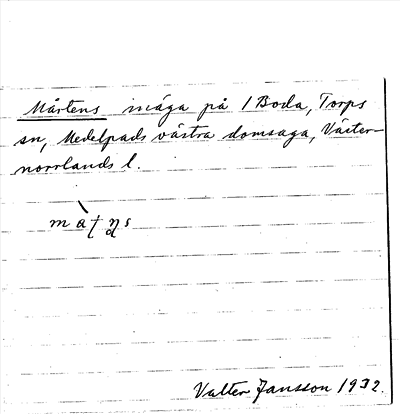 Mårtens inäga på 1 Boda, Torps
sn, Medelpads västra domsaga, Väster-
norrlands l.
Valter Jansson 1932.